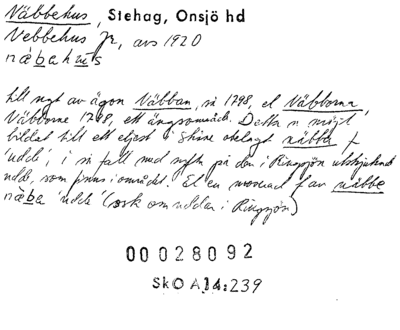 Väbbehus, Stehag, Onsjö hd
Vebbehus Jr, avs 1920
næbahus
till sngt av ägon Väbban, nr 1798, el Väbborna,
Väbborne 1798, ett ängsområde. Detta n möjl
bildat till ett eljest i Skåne obelagt näbba f
'udde', i så fall med syftn på den i Ringsjön utskjutande
udde, som finns i området. El en m av näbbe
næba 'udde' (ock om uddar i Ringsjön)
00 028092
SkO A14:239